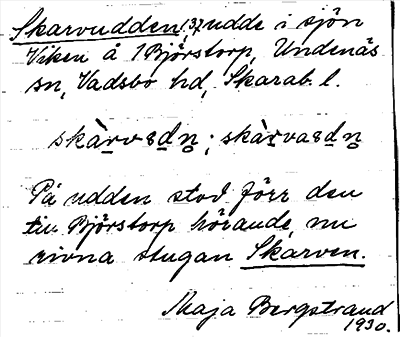 Skarvudden, 37, udde i sjön
Viken å 1 Björstorp, Undenäs
sn, Vadsbo hd, Skarab. l.
På udden stod förr den
till Björstorp hörande, nu
rivna stugan Skarven.
Maja Bergstrand
1930.